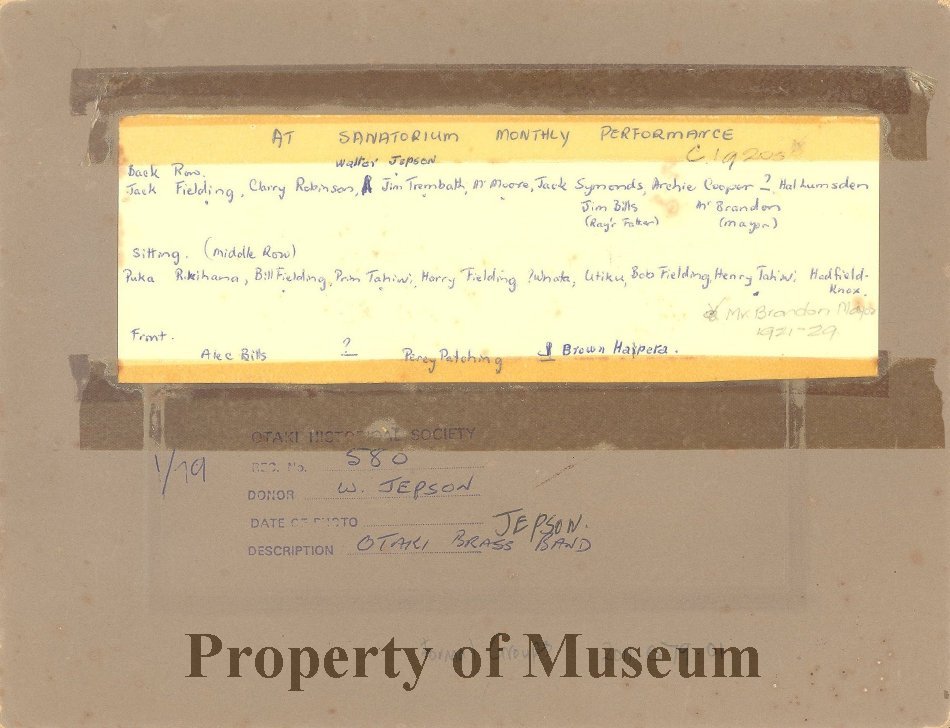 AT SANATORIUM MONTHLY PERFORMANCE
C.1920s
Back Row. Walter Jepson
Jack Fielding, Clarry Robinson, Jim Trembath, Mr Moore, Jack Symonds, Archie Cooper ?, Hal Lumsden
Jim Bills Mr Brandon
(Ray's Father) (mayor)
Sitting. (Middle Row)
Puka Rikihana, Bill Fielding, Prim Tahiwi, Harry Fielding ?Whata, Utiku, Bob Fielding, Henry Tahiwi, Hadfield-
Knox.
Mr. Brandon Mayor
1921-29
Front.
Alec Bills ? Percy Patching Brown Haipera.
OTAKI HISTORICAL SOCIETY
1/79
REG. No. 580
DONOR W. JEPSON
DATE OF PHOTO JEPSON.
DESCRIPTION OTAKI BRASS BAND
Property of Museum